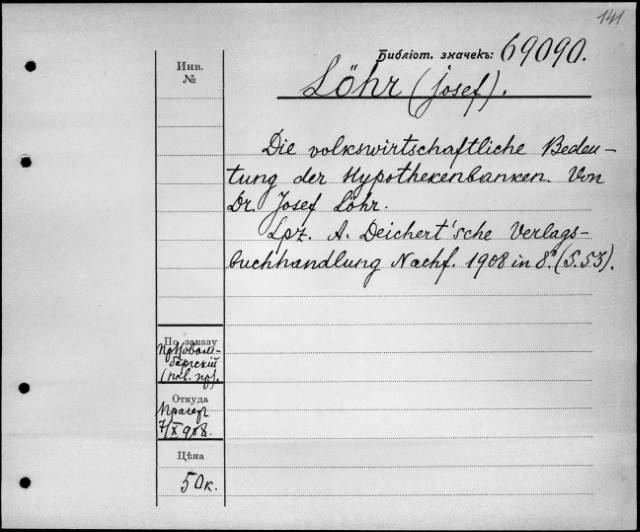 141
Библіот. значекъ: 69090.
Инв.
№
Löhr (Josef).
Die volkswirtschaftliche Bedeu-
tung der Hypothekenbanken. Von
Dr. Josef Löhr.
Lpz. A. Deichert'sche Verlags-
buchhandlung Nachf. 1908 in 8° (S. 53).
По заказу
Откуда
Прагер
7/X 908.
Цѣна
50 к.